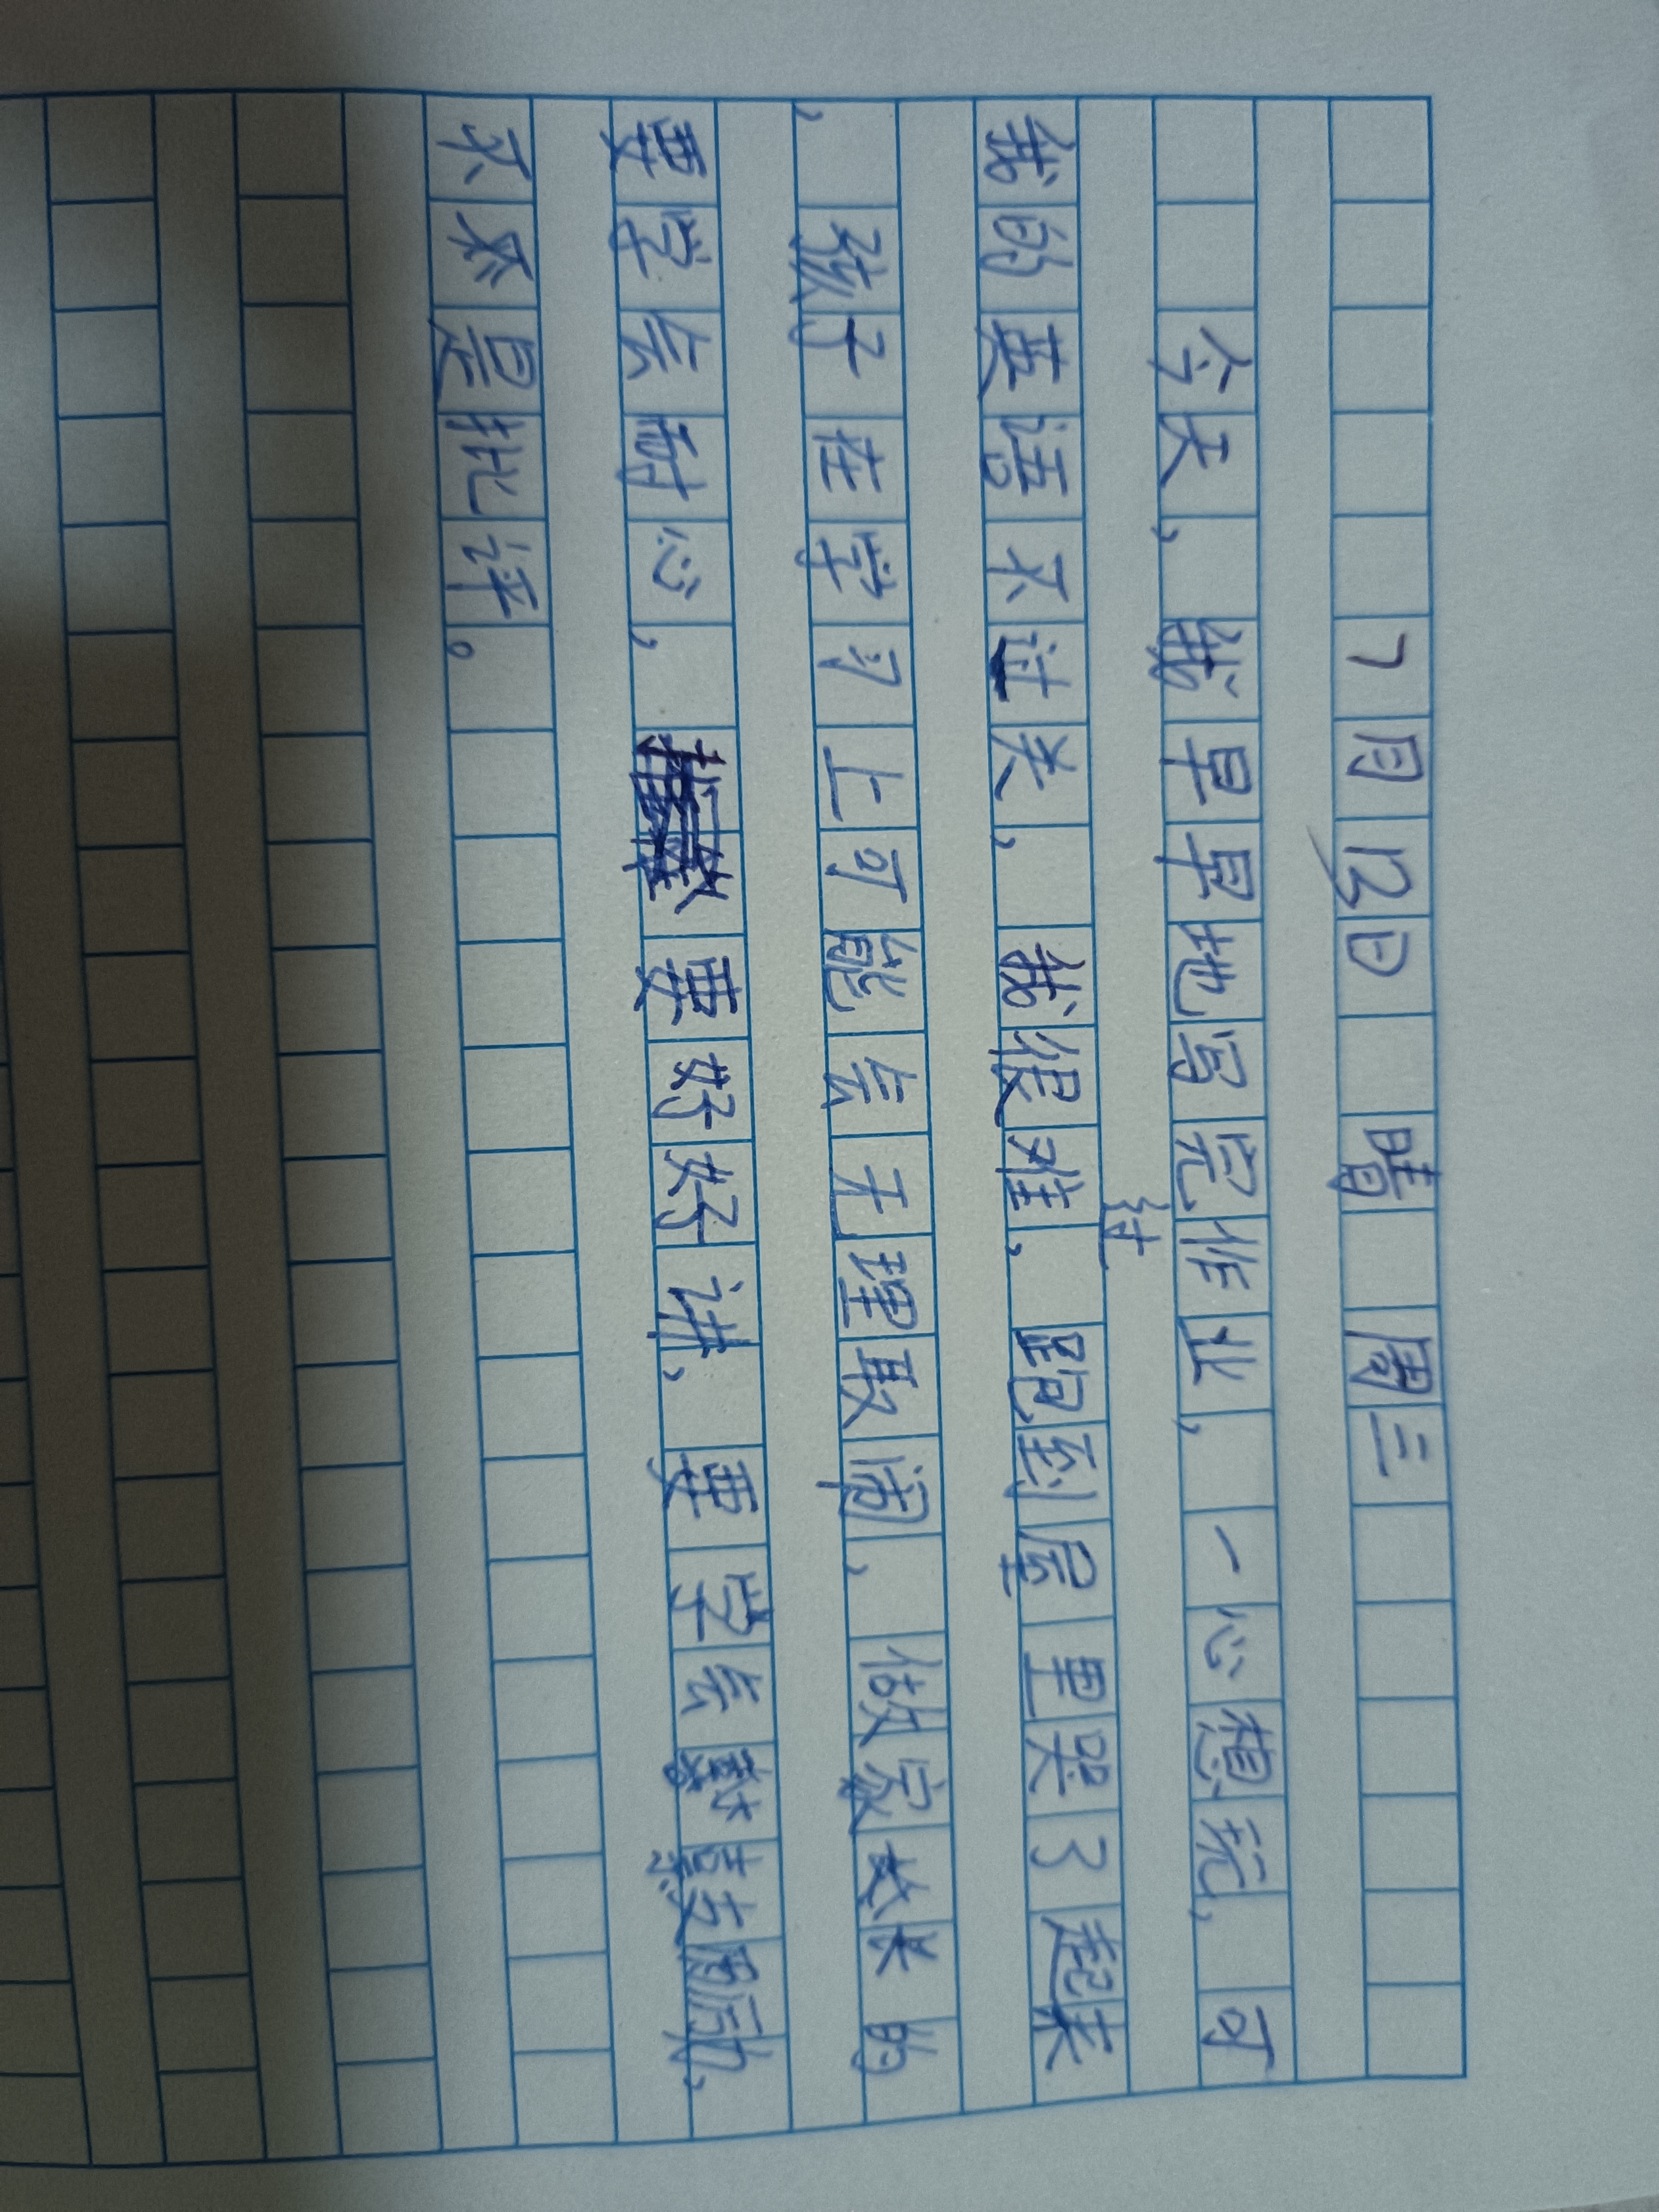 7月12日 晴 周三
今天，我早早地写完作业，一心想玩，可
我的英语不过关，我很难过，跑到屋里哭了起来
，孩子在学习上可能会无理取闹，做家长的
要学会耐心，要好好讲，要学会鼓励，
不是批评。